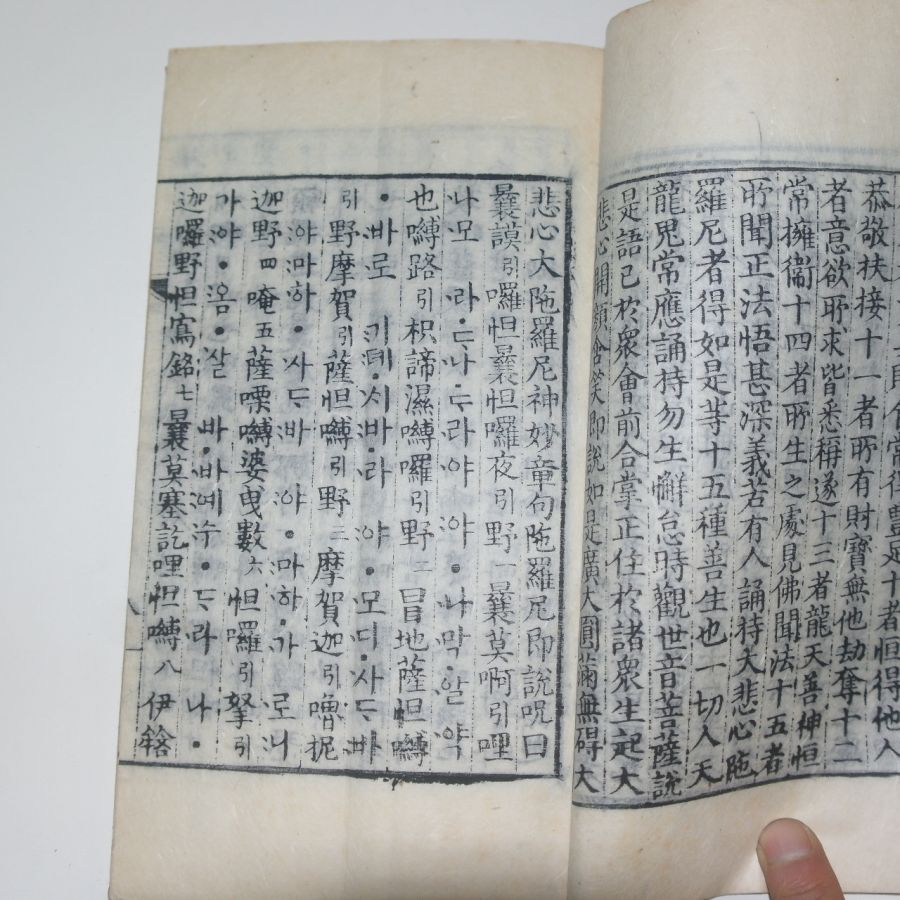 食常得豐足十者恒得他人
恭敬扶接十一者所有財寶無他劫奪十二
者意欲所求皆悉稱遂十三者龍天善神恒
常擁衞十四者所生之處見佛聞法十五者
所聞正法悟甚深義若有人誦持大悲心陁
羅尼者得如是等十五種善生也一切人天
龍鬼常應誦持勿生懈怠時觀世音菩薩說
是語已於衆會前合掌正住於諸衆生起大
悲心開顔含笑即說如是廣大圓滿無碍大
悲心大陁羅尼神妙章句陁羅尼即說呪曰
曩謨引囉怛曩怛囉夜引野一曩莫啊引哩
나모라·ᄃᆞ나·ᄃᆞ라야야·나막·알약
也嚩路引枳諦濕嚩囉引野二冒地薩怛嚩
·바로기뎨·시바·라야·모디·사ᄃᆞ바
引野摩賀引薩怛嚩引野三摩賀迦引嚕抳
야마하·사ᄃᆞ바야·마하·가로니
迦野四唵五薩嚟嚩婆曳數六怛羅引拏引
가야·옴·살바·바예수·ᄃᆞ라나·
迦囉野怛寫銘七曩莫塞訖哩怛嚩八伊